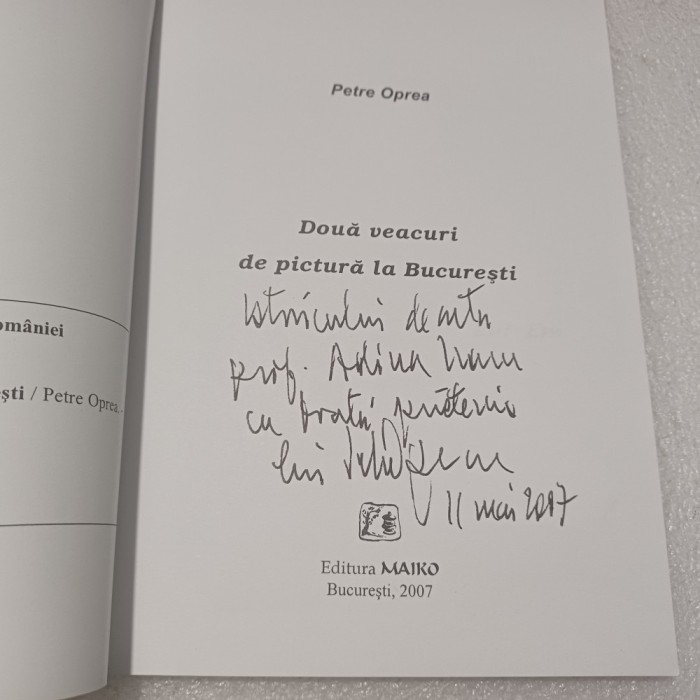 omâniei
ști / Petre Oprea.
Petre Oprea
Două veacuri
de pictură la București
Istoricului de artă
prof. Adina Nanu
cu toată prietenia
lui
11 mai 2007
Editura MAIKO
București, 2007